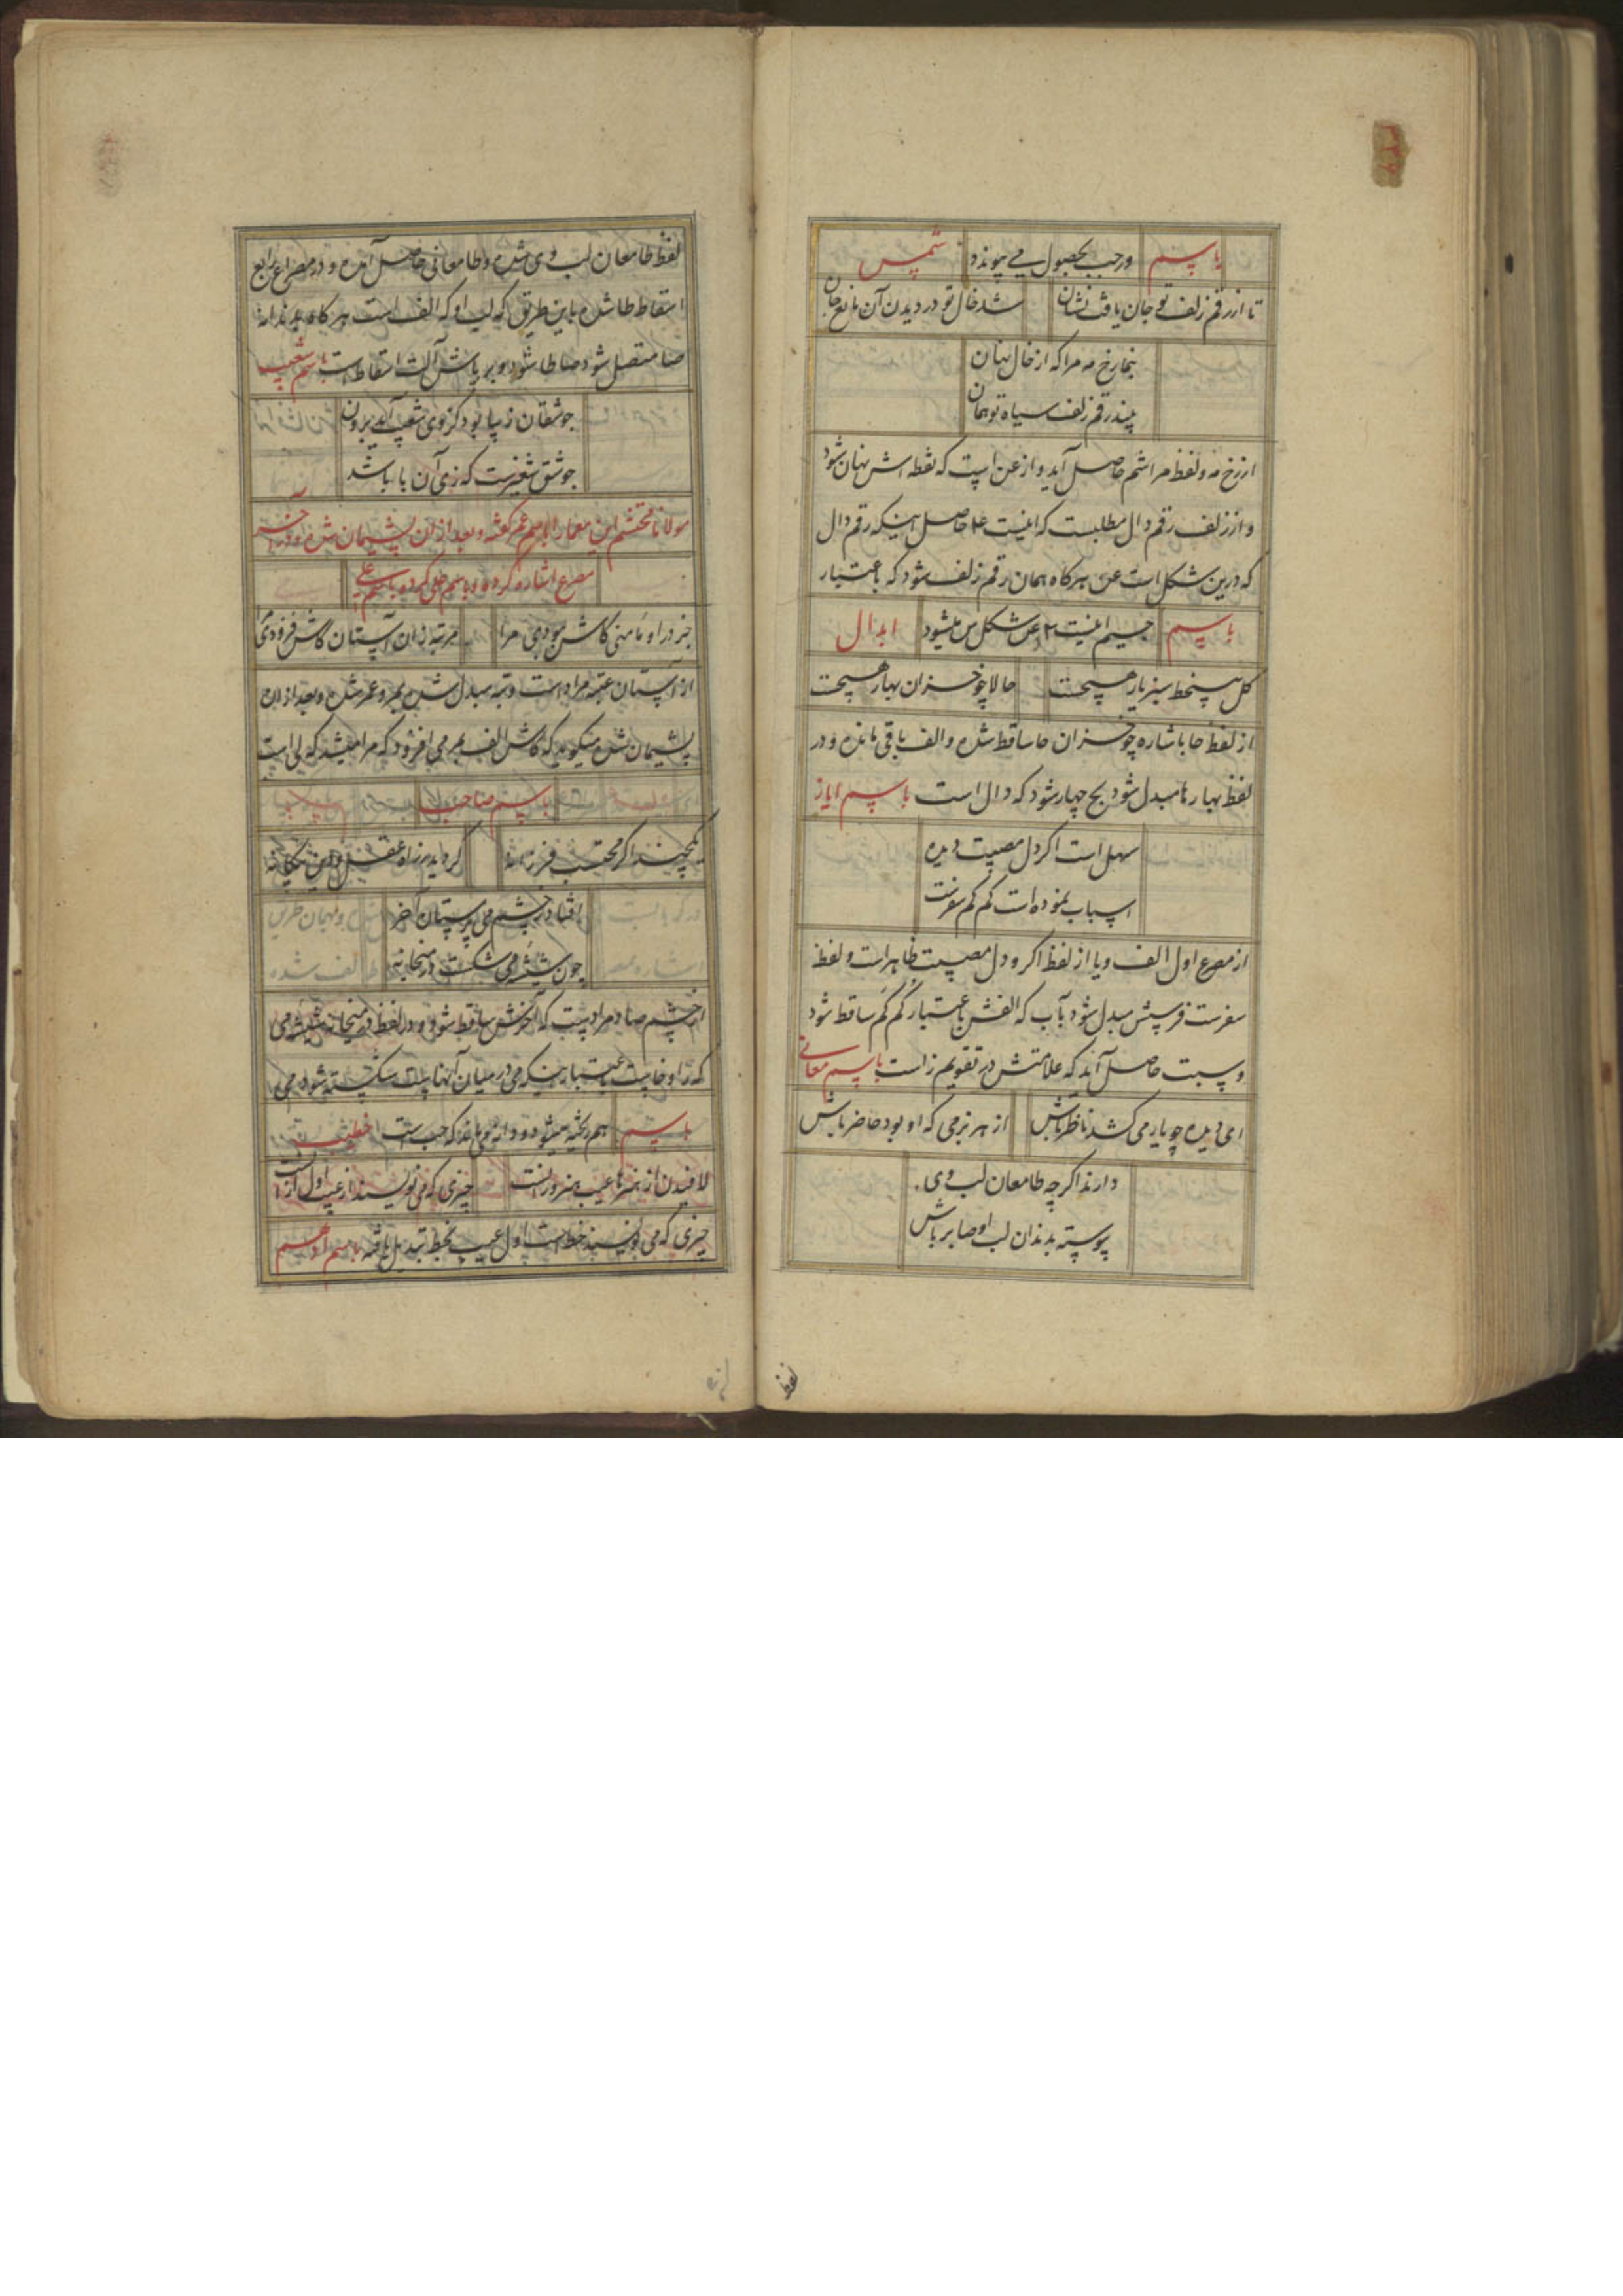 باسم ورجب بحصول می پیوندد شمس
تا از رقم زلف تو جان یافت نشان شد خال تو در دیدن آن مانع جان
بنما رخ مه مرا که از خال نهان
بیند رقم زلف سیاه تو همان
از رخ مه و لفظ مرا شم حاصل آید و از عن است که نقطه اش نهان شود
و از زلف رقم دال مطلبست که اینست ۴ حاصل اینکه رقم دال
که درین شکل است عن هرگاه همان رقم زلف شود که باعتبار
باسم جیم اینست ۳ عن شکل س میشود ابدال
گل پیش خط سبز یار هیچست حالا چو خزان بهار هیچست
از لفظ حا باشاره چو خزان حا ساقط شده و الف باقی مانده و در
لفظ بهار ها مبدل شود بج چهار شود که دال است باسم ایاز
سهل است اگر دل مصیبت دیده
اسباب نموده است کم کم سفرت
از مصرع اول الف و یا از لفظ اگر و دل مصیبت ظاهر است و لفظ
سفرت فرسش مبدل شود بآب که الفش باعتبار کم کم ساقط شود
و سبت حاصل آید که علامتش در تقویم ز است باسم معانی
ای دیده چو یار می کشد ناظر باش از هر بزمی که او بود حاضر باش
دارند اگر چه طامعان لب وی
پیوسته بدندان لب او صابر باش
لفظ
لفظ طامعان لب وی شده و طا معانی حاصل آمده و در مصراع رابع
اسقاط طا شده باین طریق که لب او که الف است هرگاه بدندانه
صا متصل شود صا طا شود و بر باش آلت اسقاط است باسم شعیب
جوشقان زیبا بود کز وی شعیب آید برون
جوشق شغبرست که زی آن با باشد
مولانا محتشم این معما را باسم عمر گفته و بعد از آن پشیمان شده و در آخر
مصرع اشاره کرده و باسم علی کرده باسم علی
جز در او مأمنی کاش نبودی مرا مرتبه زان آستان کاش فزودی مرا
از آستان عتبه مراد است و تبه مبدل شده بمر و عمر شده و بعد از ان
پشیمان شده میگوید که کاش الف بمر می افزود که مرا میشد که لی است
باسم صاحب
یکچند اگر محتسب فرزانه گردید ز راه عقل و دین بیگانه
افتاد بچشم می پرستان آخر
چون شیشه می شکست در میخانه
از چشم صاد مراد است که آخرش ساقط شود و در لفظ میخانه شیشه می
که را و خاست باعتبار اینکه می در میان آنهاست شکسته شود می
باسم هم ریخته میشود و دانه می ماند که حب است خطیب
لافیدن از هنرها عیب هنرور است چیزی که می نویسند از عیب اول است
چیزی که می نویسند خط است اول عیب بخط تبدیل یافته باسم ادهم